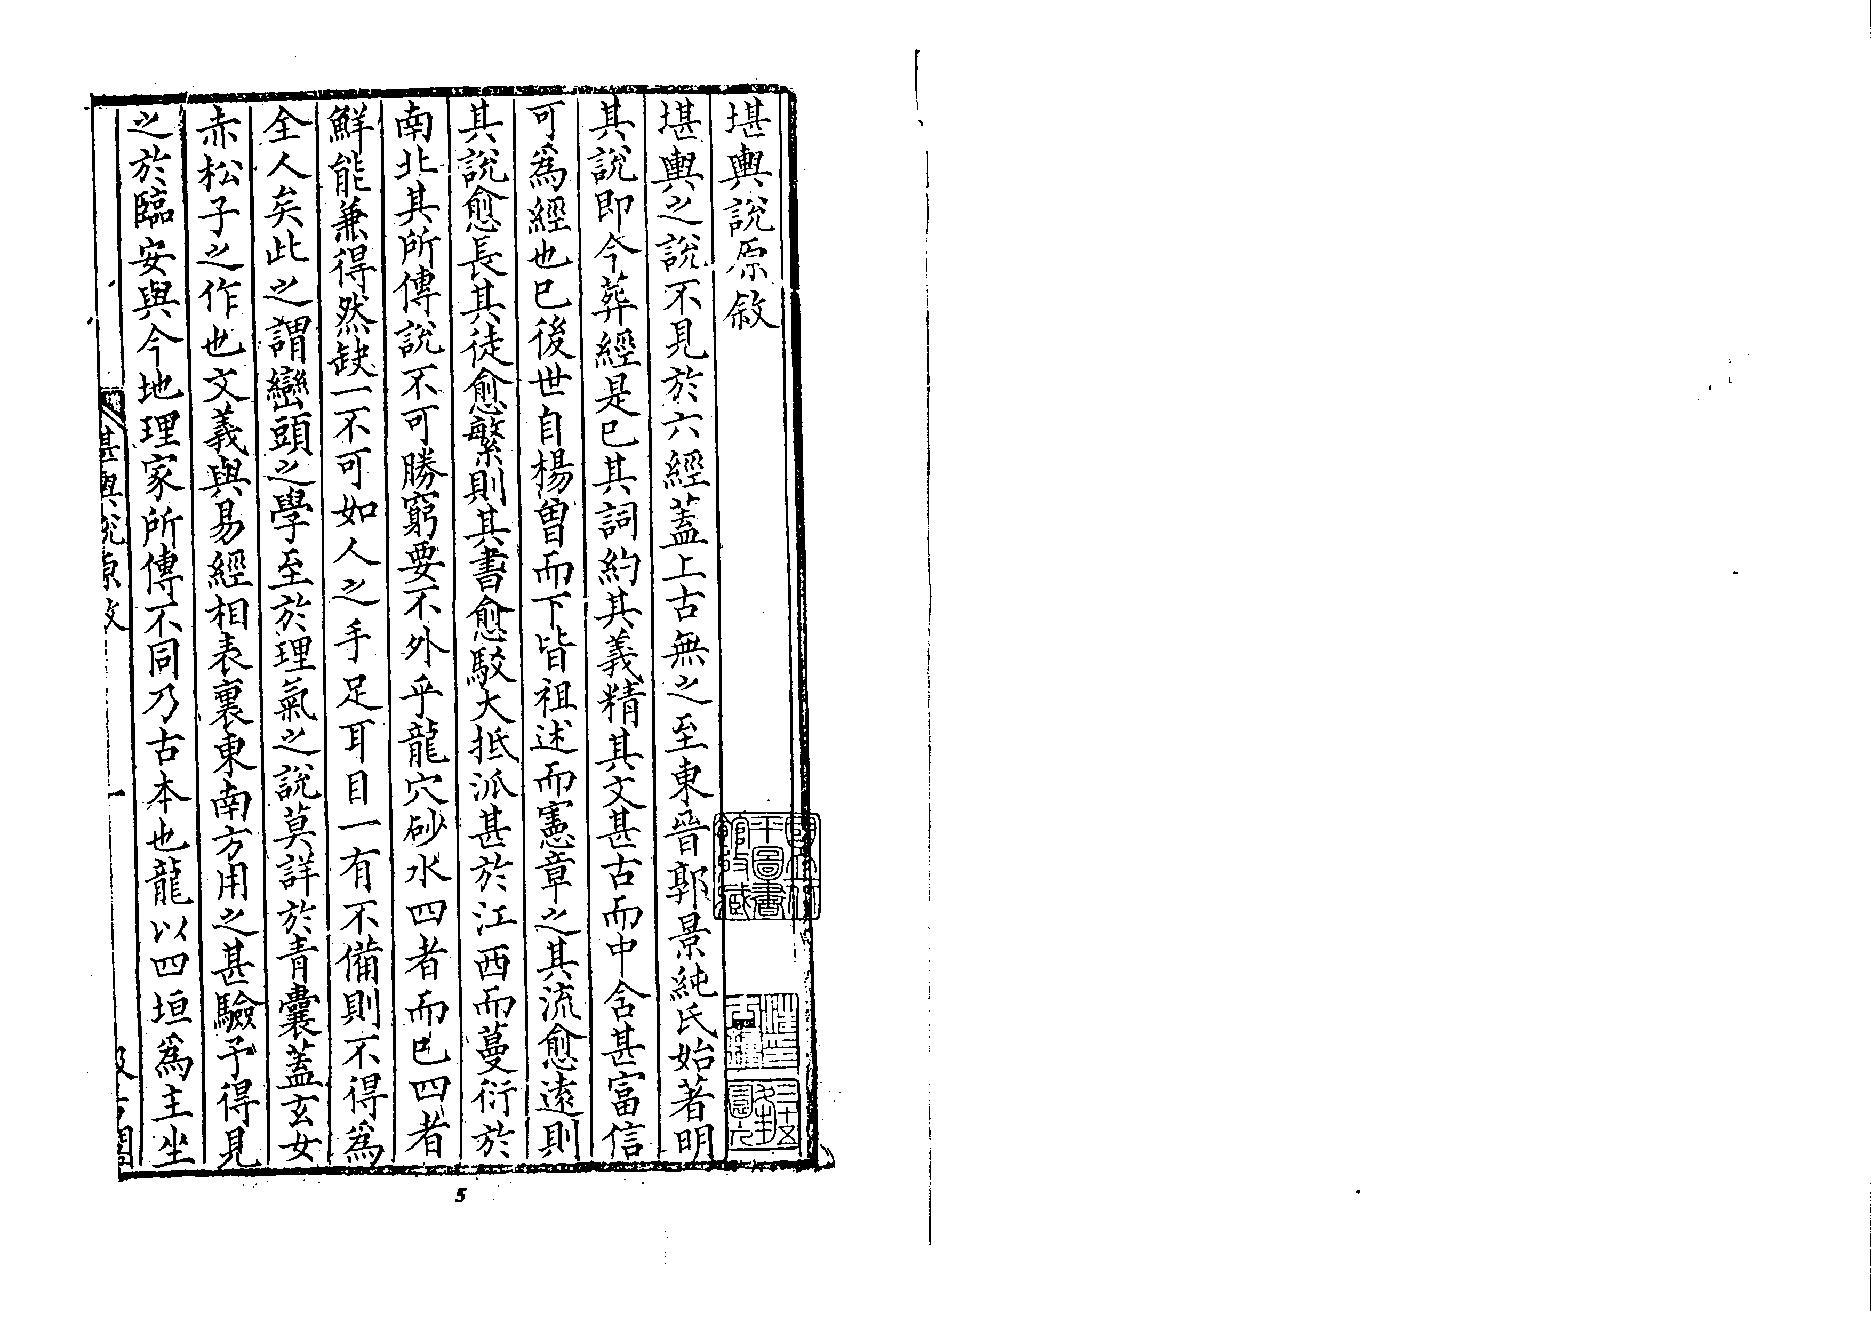 堪輿說原敘
堪輿之說不見於六經蓋上古無之至東晉郭景純氏始著明
其說即今葬經是已其詞約其義精其文甚古而中含甚富信
可為經也已後世自楊曾而下皆祖述而憲章之其流愈遠則
其說愈長其徒愈繁則其書愈駁大抵派甚於江西而蔓衍於
南北其所傳說不可勝窮要不外乎龍穴砂水四者而已四者
鮮能兼得然缺一不可如人之手足耳目一有不備則不得為
全人矣此之謂巒頭之學至於理氣之說莫詳於青囊蓋玄女
赤松子之作也文義與易經相表裏東南方用之甚驗予得見
之於臨安與今地理家所傳不同乃古本也龍以四垣為主坐
堪輿說原敘
一
國立北
平圖書
館收藏
5